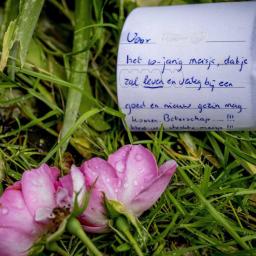 Voor
het 10-jarig meisje, dat je
zal leven en veilig bij een
goed en nieuw gezin mag
komen. Beterschap.... !!!